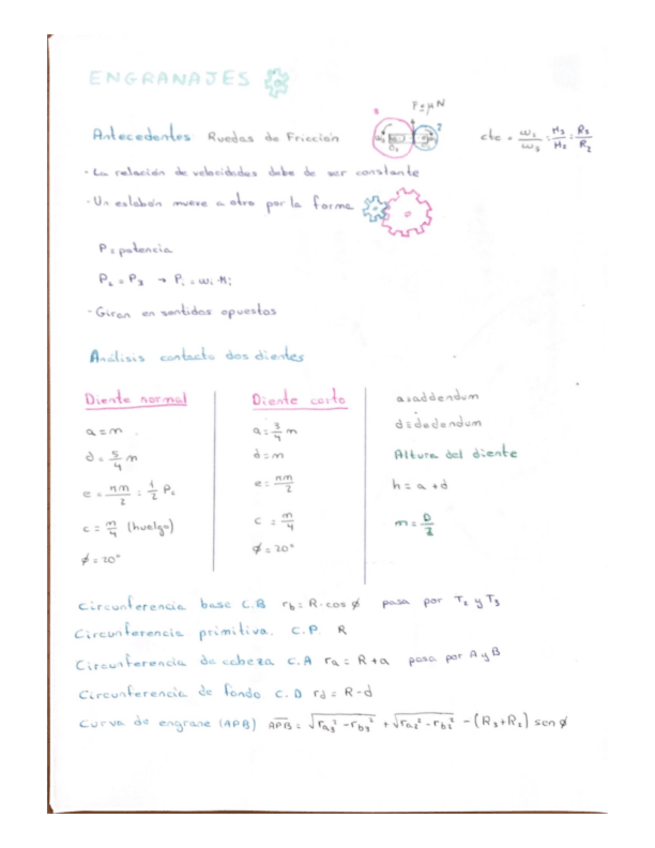 ENGRANAJES
Antecedentes Ruedas de Fricción
F=μN
cte = ω₂/ω₃ = M₃/M₂ = R₃/R₂
· La relación de velocidades debe de ser constante
· Un eslabón mueve a otro por la forma
P = potencia
P₂ = P₃ → Pᵢ = ωᵢ·Mᵢ
· Giran en sentidos opuestos
Análisis contacto dos dientes
Diente normal
a = m
d = 5/4 m
e = πm/2 = 1/2 Pc
c = m/4 (huelgo)
ϕ = 20°
Diente corto
a = 3/4 m
d = m
e = πm/2
c = m/4
ϕ = 20°
a = addendum
d = dedendum
Altura del diente
h = a + d
m = D/Z
Circunferencia base C.B r_b = R·cos ϕ pasa por T₂ y T₃
Circunferencia primitiva. C.P. R
Circunferencia de cabeza C.A r_a = R + a pasa por A y B
Circunferencia de fondo C.D r_d = R-d
Curva de engrane (APB) APB = √(r_a3² - r_b3²) + √(r_a2² - r_b2²) - (R₃+R₂) sen ϕ